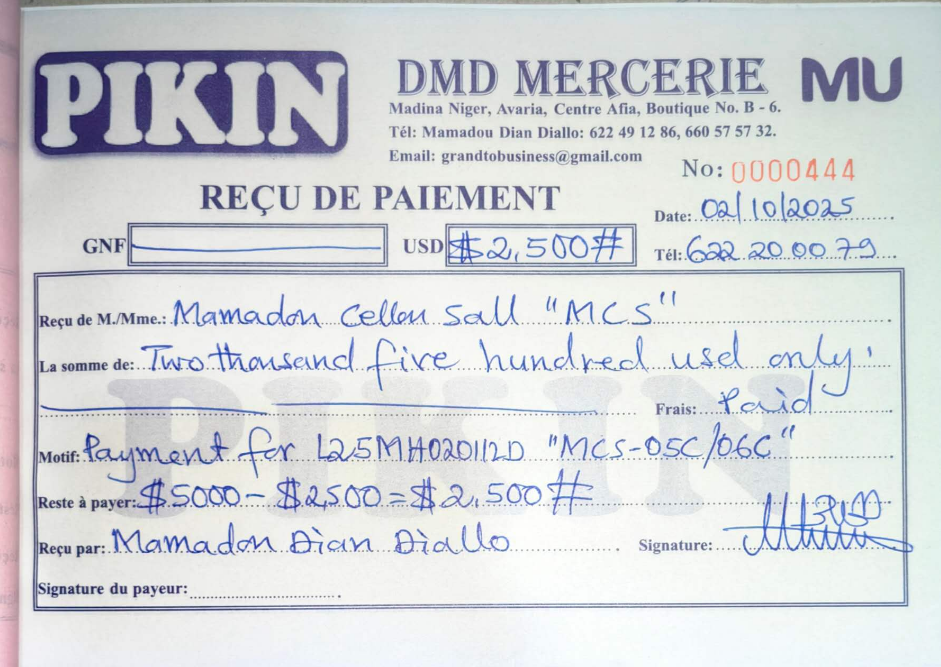 PIKIN
DMD MERCERIE
MU
Madina Niger, Avaria, Centre Afia, Boutique No. B - 6.
Tél: Mamadou Dian Diallo: 622 49 12 86, 660 57 57 32.
Email: grandtobusiness@gmail.com
No: 0000444
REÇU DE PAIEMENT
Date: 02/10/2025
GNF
USD $2,500#
Tél: 622 20 00 79
Reçu de M./Mme.: Mamadou Cellou Sall "MCS"
La somme de: Two thousand five hundred usd only.
Frais: Paid
Motif: Payment for L25MH020112D "MCS-05C/06C"
Reste à payer: $5000 - $2,500 = $2,500#
Reçu par: Mamadou Dian Diallo
Signature:
Signature du payeur:
PIKIN